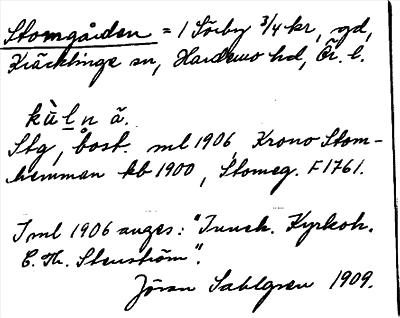 Stomgården = 1 Sörby 3/4 kr, gd,
Kräcklinge sn, Hardemo hd, Ör. l.
kùl̲n ā.
Stg, bost. ml 1906, Krono Stom-
hemman kb 1900, Stomeg. F1761.
I ml 1906 anges: "Inneh. Kyrkoh.
C. Th. Stenström".
Jöran Sahlgren 1909.